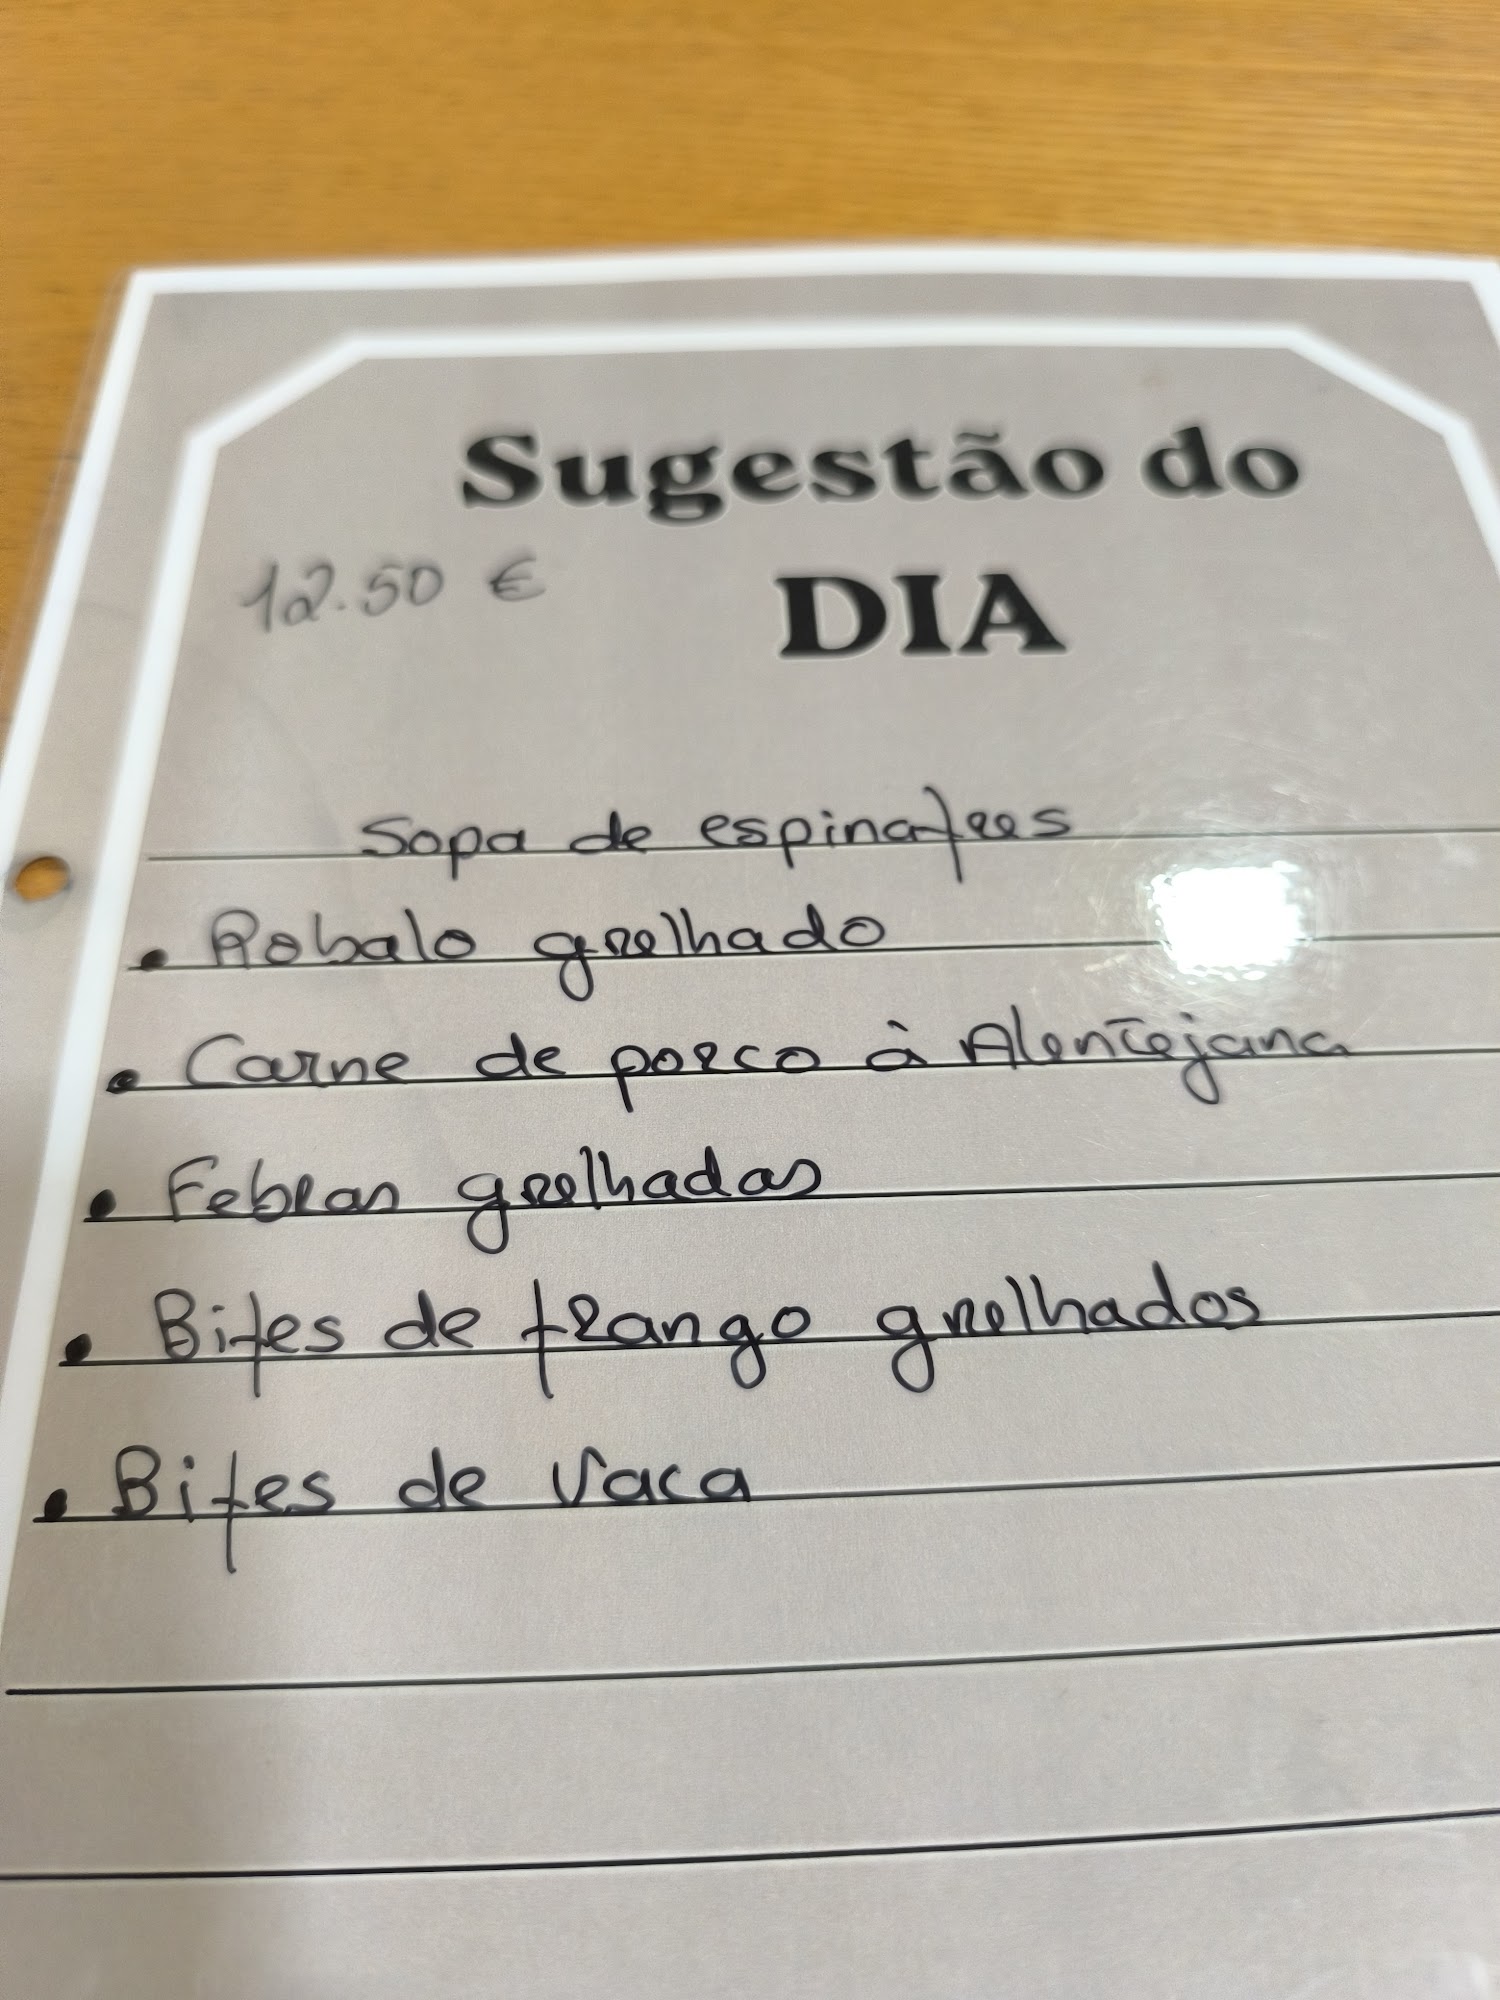 Sugestão do
12.50 € DIA
Sopa de espinafres
• Robalo grelhado
• Carne de porco à Alentejana
• Febras grelhadas
• Bifes de frango grelhados
• Bifes de Vaca